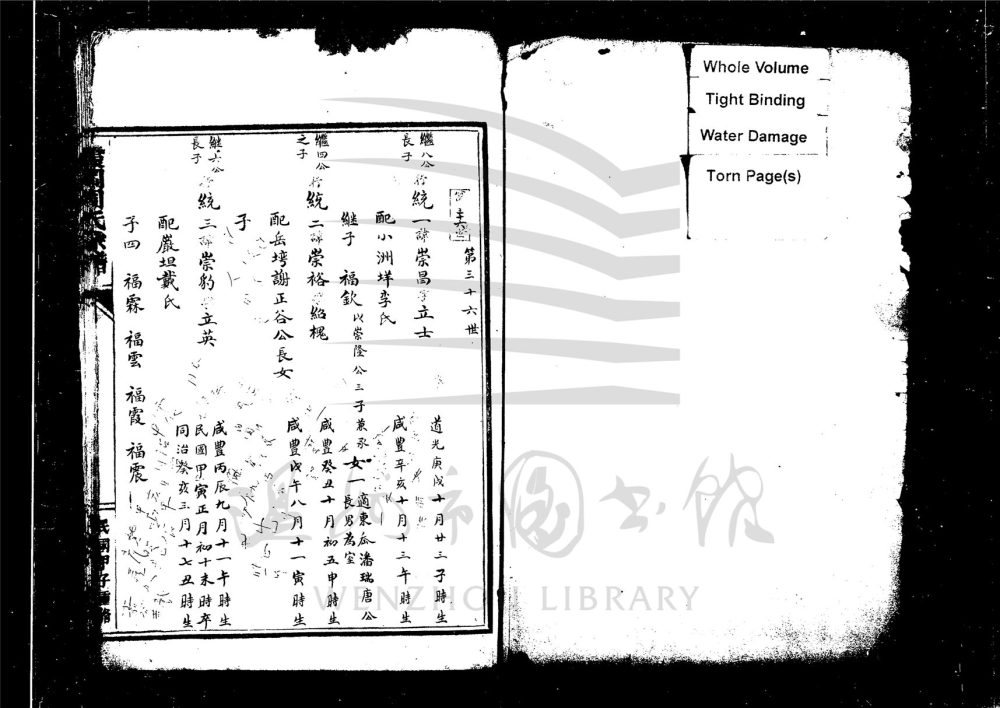 第三十六世
繼八公
長子
行統一諱崇昌字立士
道光庚戌十月廿三子時生
配小洲垟李氏
咸豐辛亥十月十三午時生
繼子 福欽 以崇隆公三子兼承 女一 適東瓜潘瑞唐公
長男為室
繼四公
之子
行統二諱崇裕字紹槐
咸豐癸丑十月初五申時生
配岳垮謝正谷公長女
咸豐戊午八月十一寅時生
子
長子
統三諱崇豹字立英
咸豐丙辰九月十一午時生
民國甲寅正月初十未時卒
配嚴坦戴氏
同治癸亥三月十七丑時生
子四 福霖 福雲 福霞 福震
Whole Volume
Tight Binding
Water Damage
Torn Page(s)
溫州市圖書館
WENZHOU LIBRARY